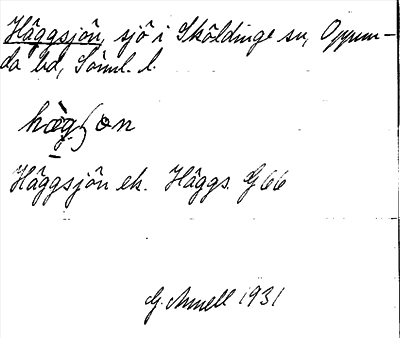 Häggsjön, sjö i Sköldinge sn, Oppun-
da hd, Söml. l.
Häggsjön ek. Häggs. G 66
G. Annell 1931